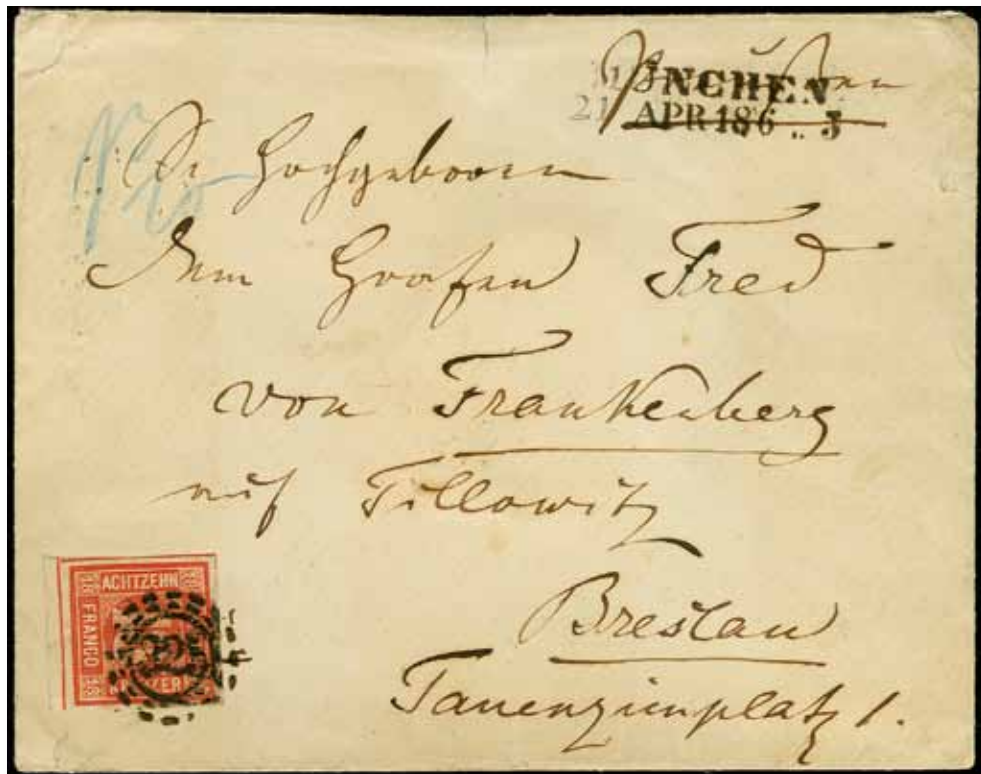 Preußen
MÜNCHEN
21 APR 186 .. 3
Sr Hochgeboren
dem Grafen Fred
von Frankenberg
auf Tillowitz
Breslau
Tauenzinplatz 1.
ACHTZEHN
FRANCO
KREUZER
18 18